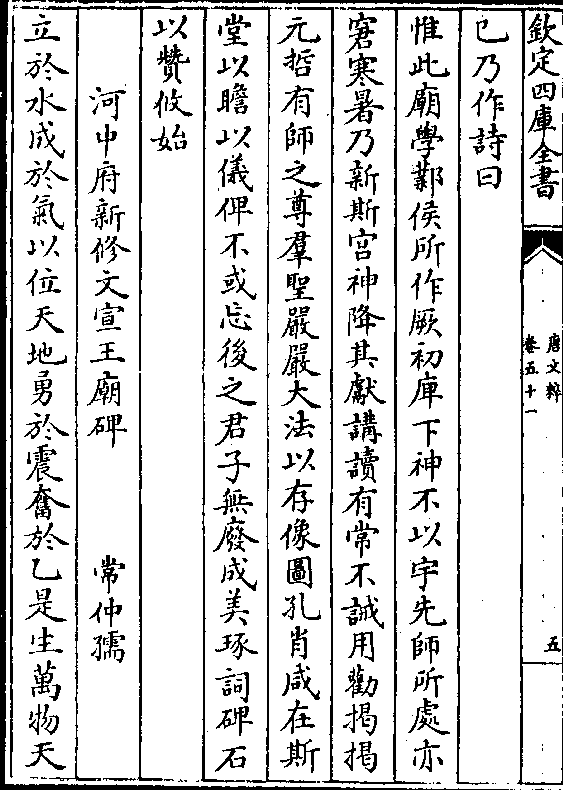 欽定四庫全書
唐文粹
卷五十一
五
已乃作詩曰
惟此廟學鄴侯所作厥初庫下神不以宇先師所處亦
窘寒暑乃新斯宮神降其獻講讀有常不誡用勸揭揭
元哲有師之尊羣聖嚴嚴大法以存像圖孔肖咸在斯
堂以瞻以儀俾不或忘後之君子無廢成美琢詞碑石
以贊攸始
河中府新修文宣王廟碑　常仲孺
立於水成於氣以位天地勇於震奮於乙是生萬物天